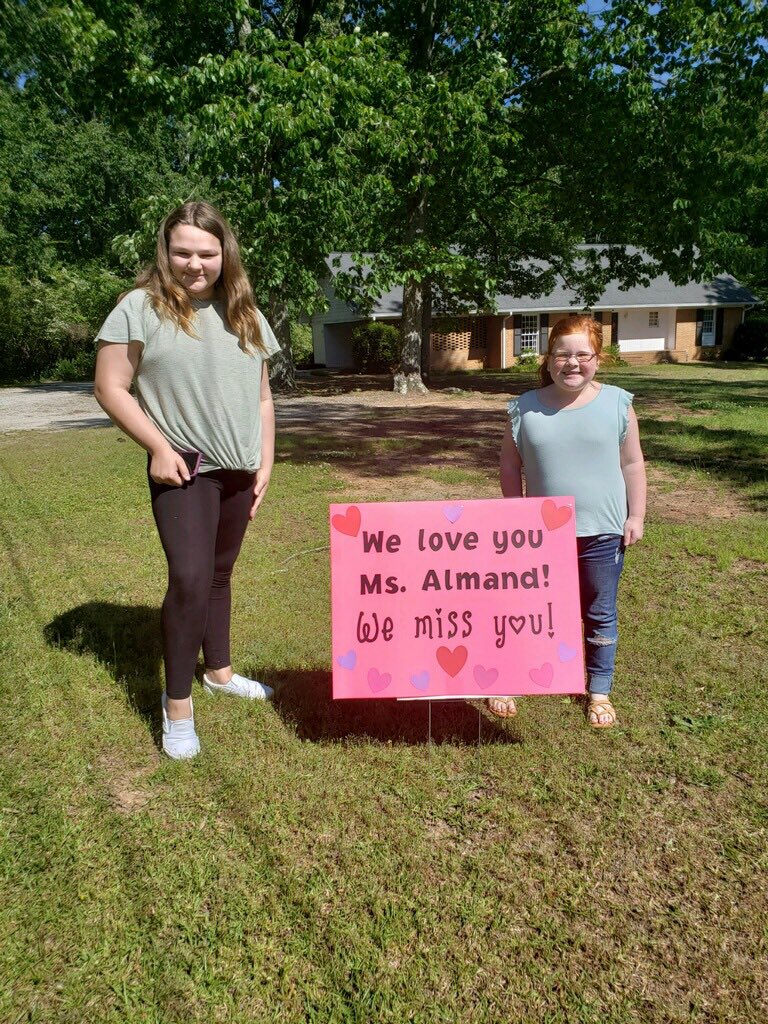 We love you
Ms. Almand!
We miss you!